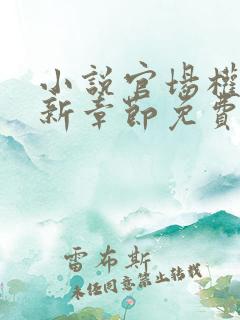 小說官場權
新章節免費
雷布斯
未經同意禁止轉載